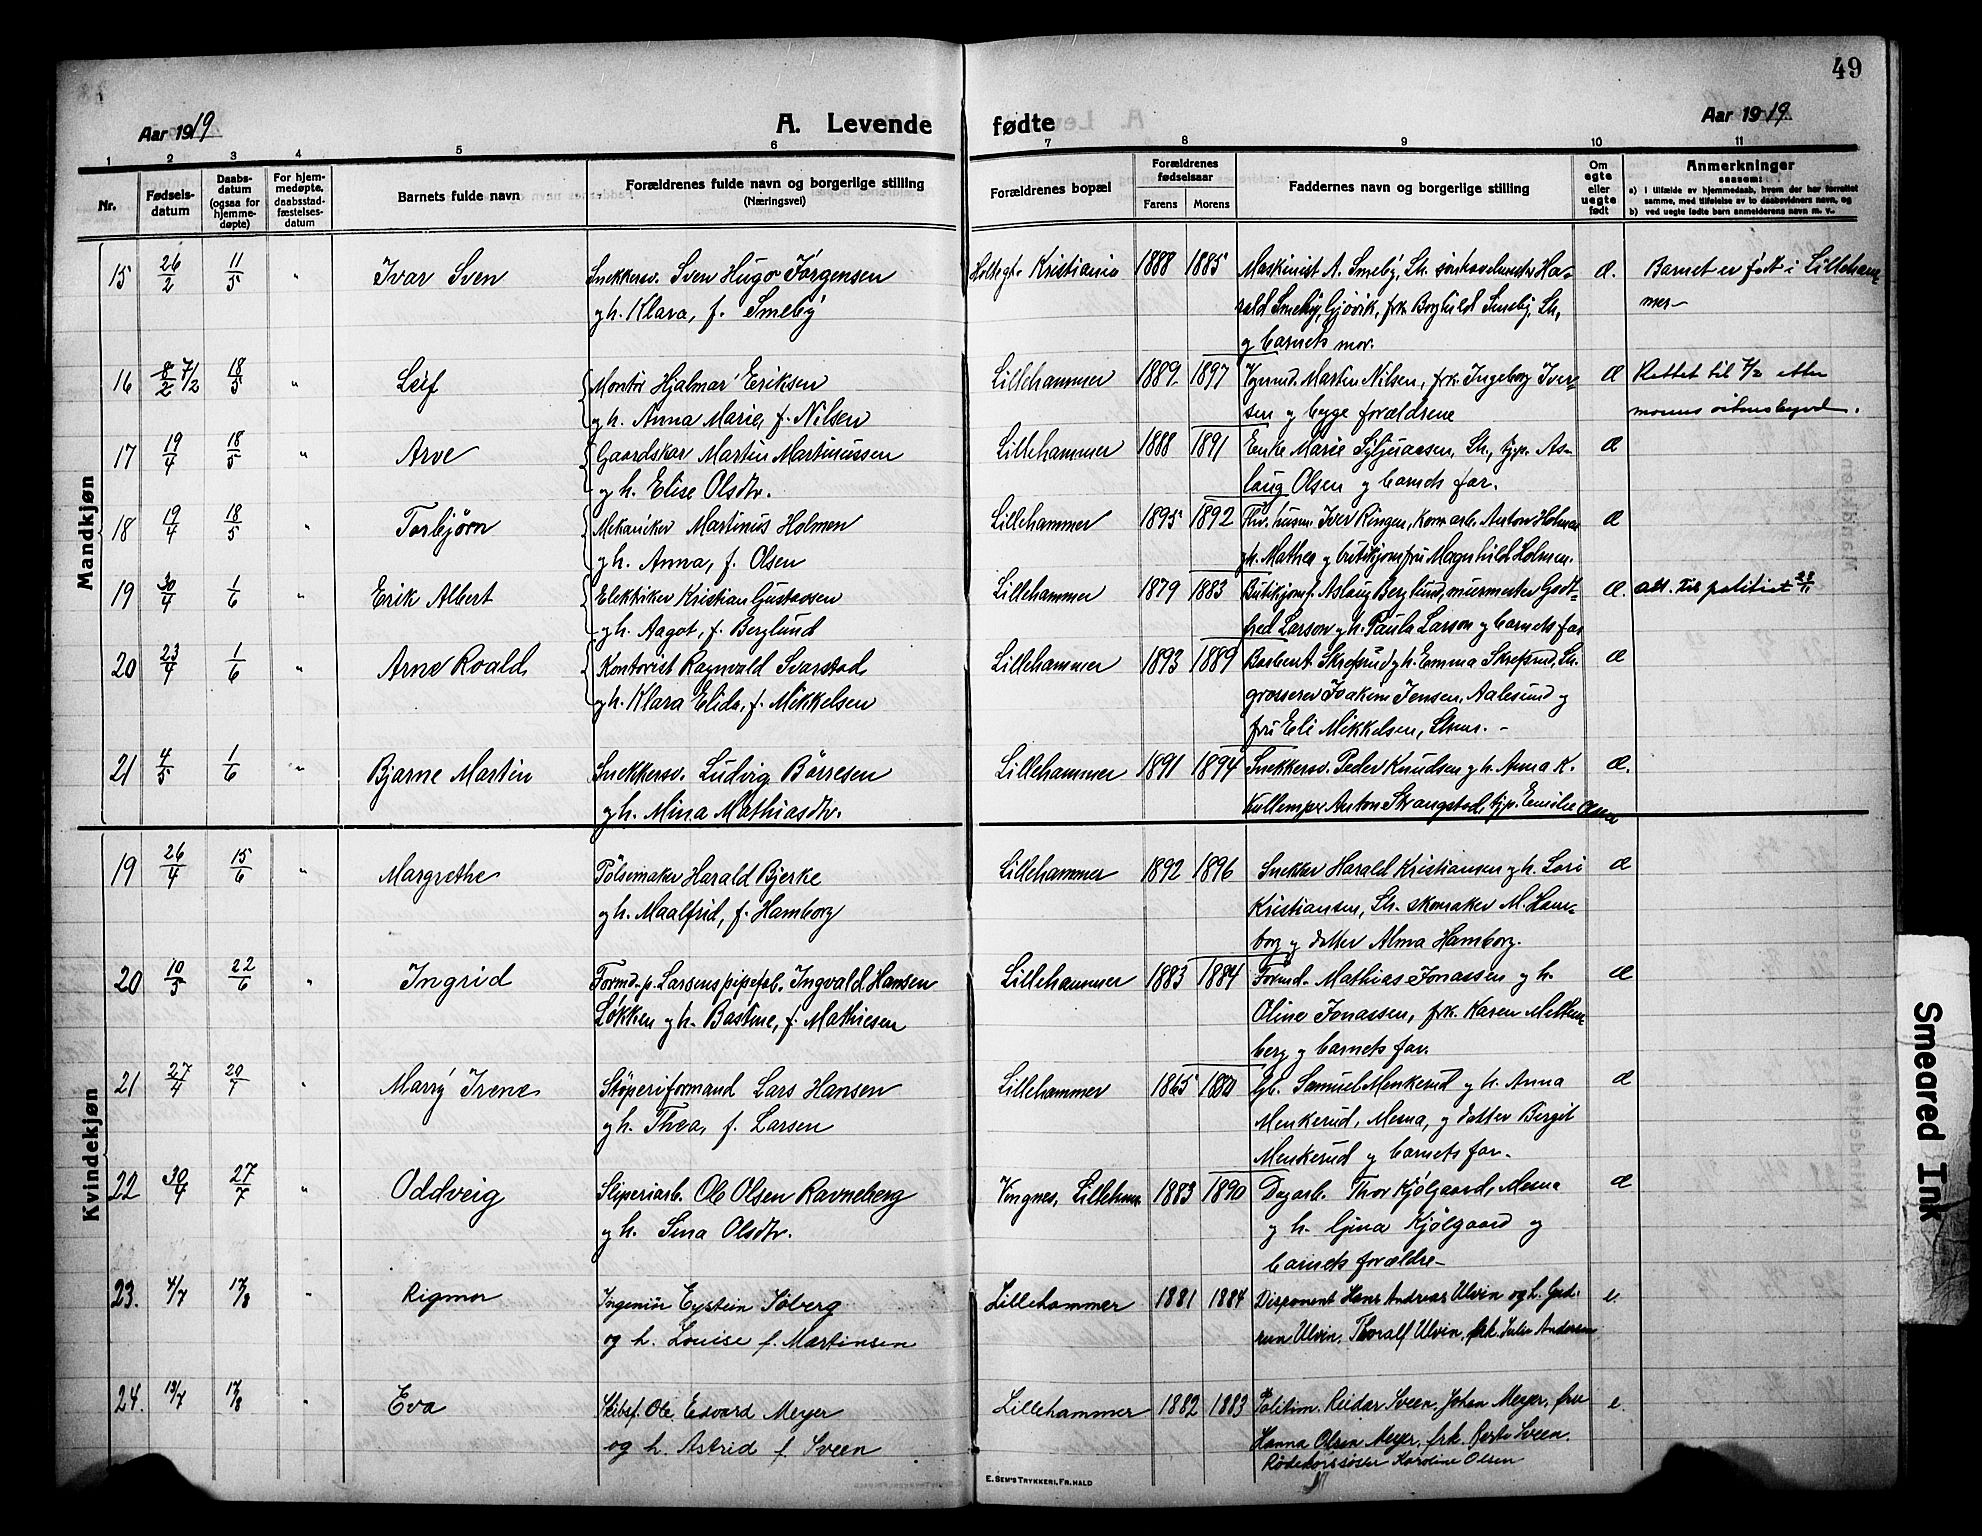 49
Aar 1919
A. Levende
fødte
Aar 1919
1 2 3 4 5 6 7 8 9 10 11
Nr.
Fødsels-
datum
Daabs-
datum
(ogsaa for
hjemme-
døpte)
For hjem-
medøpte,
daabsstad-
fæstelses-
datum
Barnets fulde navn
Forældrenes fulde navn og borgerlige stilling
(Næringsvei)
Forældrenes bopæl
Forældrenes
fødselsaar
Farens
Morens
Faddernes navn og borgerlige stilling
Om
ægte
eller
uægte
født
Anmerkninger
saasom:
a) i tilfælde av hjemmedaab, hvem der har forrettet
samme, med tilføielse av to daabsvidners navn, og
b) ved uegte fødte barn anmelderens navn m. v.
Mandkjøn
15 26/2 11/5 " Ivar Sven Snekkersv. Sven Hugo Jørgensen Kristiania 1888 1885 Maskinist A. Smeby, Lh. Ha- æ. Barnet er født i Lilleham-
gh. Klara, f. Smeby rald Smeby, Gjøvik, frk. Borghild Smeby, Lh, mer-
g barnets mor.
16 8/2 7/2 18/5 " Leif Montør Hjalmar Eriksen Lillehammer 1889 1897 Martin Nilsen, frk. Ingeborg Iver- æ Rettet til 7/2 etter
gh. Anna Marie, f. Nilsen sen g begge forældrene morens
17 19/4 18/5 " Arve Gaardskar Martin Martinussen Lillehammer 1888 1891 Enke Marie Syljuaasen, Lh., tjp. As- æ
gh. Elise Olsdtr. laug Olsen g barnets far.
18 19/4 18/5 " Torbjørn Mekaniker Martinus Holmen Lillehammer 1895 1892 Iver Ringen, Anton Holmen æ
gh. Anna, f. Olsen gh. Mathea g butikjomfru Magnhild Holmen.
19 30/4 1/6 " Erik Albert Elektriker Kristian Gustavsen Lillehammer 1879 1883 Butikjomf. Aslaug Berglund, murmester Godt- æ. att. til politiet 28/11
gh. Aagot, f. Berglund fred Larson gh. Paula Larson g barnets far
20 23/4 1/6 " Arne Roald Kontorist Ragnvald Svarstad Lillehammer 1893 1889 Skrefsrud gh. Emma Skrefsrud, Lh. æ
gh. Klara Elida, f. Mikkelsen grosserer Joakim Jensen, Aalesund g
fru Eli Mikkelsen, -
21 4/5 1/6 " Bjarne Martin Snekkersv. Ludvig Børresen Lillehammer 1891 1894 Snekkersv. Peder Knudsen gh. Anna K. æ.
gh. Mina Mathiasdtr. Anton Strangstad, tjp. Emilie Olsen
Kvindekjøn
19 26/4 15/6 " Margrethe Pølsemaker Harald Bjerke Lillehammer 1892 1896 Snekker Harald Kristiansen gh. Lovi æ
gh. Maalfrid, f. Hamborg Kristiansen, Lh. skomaker M. Ham-
borg g datter Alma Hamborg.
20 10/5 22/6 " Ingrid Formd. p. Larsens pipefab. Ingvald Hansen Lillehammer 1883 1884 Formd. Mathias Jonassen g h. æ
Løkken gh. Bastine, f. Mathiesen Oline Jonassen, frk. Karen Melhem-
berg g barnets far.
21 27/4 20/7 " Marry Irene Støperiformand Lars Hansen Lillehammer 1865 1880 Gb. Samuel Menkerud g h. Anna æ
gh. Thea, f. Larsen Menkerud, Mesna, g datter Bergit
Menkerud g barnets far.
22 30/4 27/7 " Oddveig Sliperiarb. Ole Olsen Ravneberg Vingnes, Lilleham. 1883 1890 Dagarb. Thor Kjølgaard, Mesna æ
gh. Sina Olsdtr. g h. Gina Kjølgaard g
barnets forældre-
23. 4/7 17/8 " Rigmor Ingeniør Eystein Søberg Lillehammer 1881 1884 Disponent Hans Andreas Ulvin og h. Gud- e.
og h. Louise f. Martinsen run Ulvin, Thoralf Ulvin, frk. Julie Andersen
24. 19/7 17/8 " Eva Skibsf. Ole Edvard Meyer Lillehammer 1882 1883 Politim. Reidar Sveen, Johan Meyer, fru e.
og h. Astrid f. Sveen Hanna Olsen Meyer, frk. Sveen.
Rødekorssøster Karoline Olsen
E. SEM'S TRYKKERI, FR.HALD
Smeared Ink